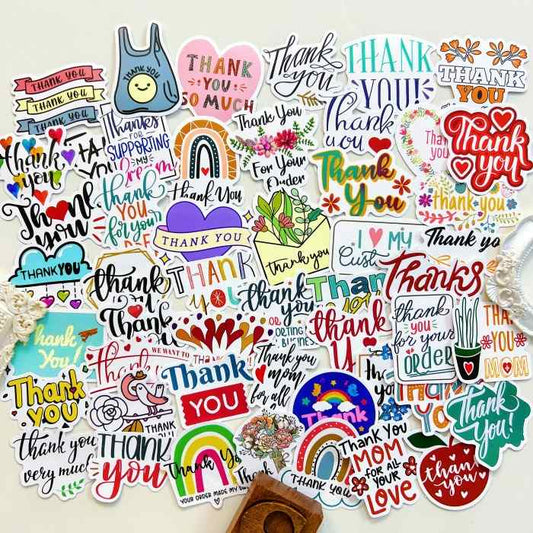 THANK YOU
THANK YOU
THANK YOU
THANK YOU
THANK
YOU
SO MUCH
Thank
you
THANK
YOU!
THANK
YOU
thank
you
Thanks
FOR
SUPPORTING
MY
Thank You
Thank You
For Your
Order
Thank
you
Thank
You
Thank
you
Thank
you
Thank
you
for your
THANK YOU
THANK YOU
thank you
I ❤ MY
Thank you
THANKYOU
Thank
Thank
You
THANK
thank
you
Thanks
thank
you
for your
ORDER
Thank You!
WE WANT TO THANK
THANK
MOM
Thank
you
Thank
YOU
thank you
mom
for all
Thank
THANK
Thank
You!
thank you
very much
Thank
you
YOUR ORDER MADE MY
Thank
THANK YOU
MOM
FOR ALL
YOUR
LOVE
thank
you